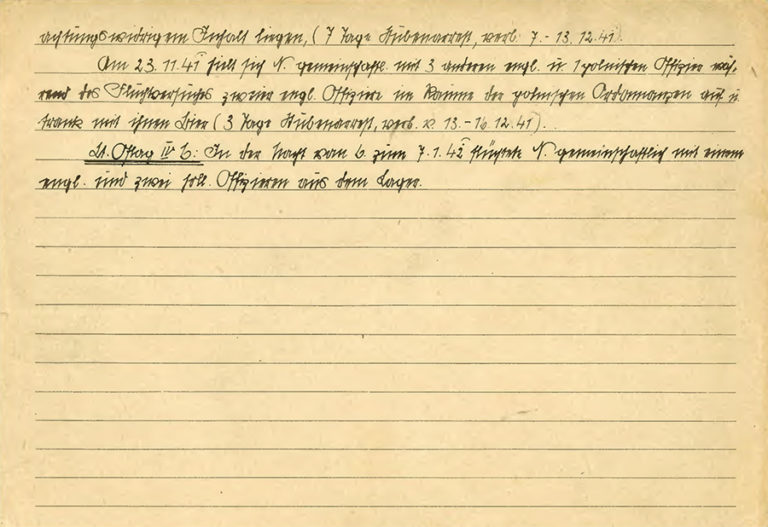 achtungswidrigem Inhalt liegen, (7 Tage Stubenarrest, verb. 7.- 13.12.41).
Am 23.11.41 hielt sich N. gemeinschaftl. mit 3 anderen engl. u. 1 polnischen Offizier wäh-
rend des Fluchtversuchs zweier engl. Offiziere im Raume der polnischen Ordonnanzen auf u.
trank mit ihnen Bier (3 Tage Stubenarrest, verb. v. 13.-16.12.41).
Lt. Oflag IV b.: In der Nacht vom 6. zum 7.1.42 flüchtete N. gemeinschaftlich mit einem
engl. und zwei holl. Offizieren aus dem Lager.